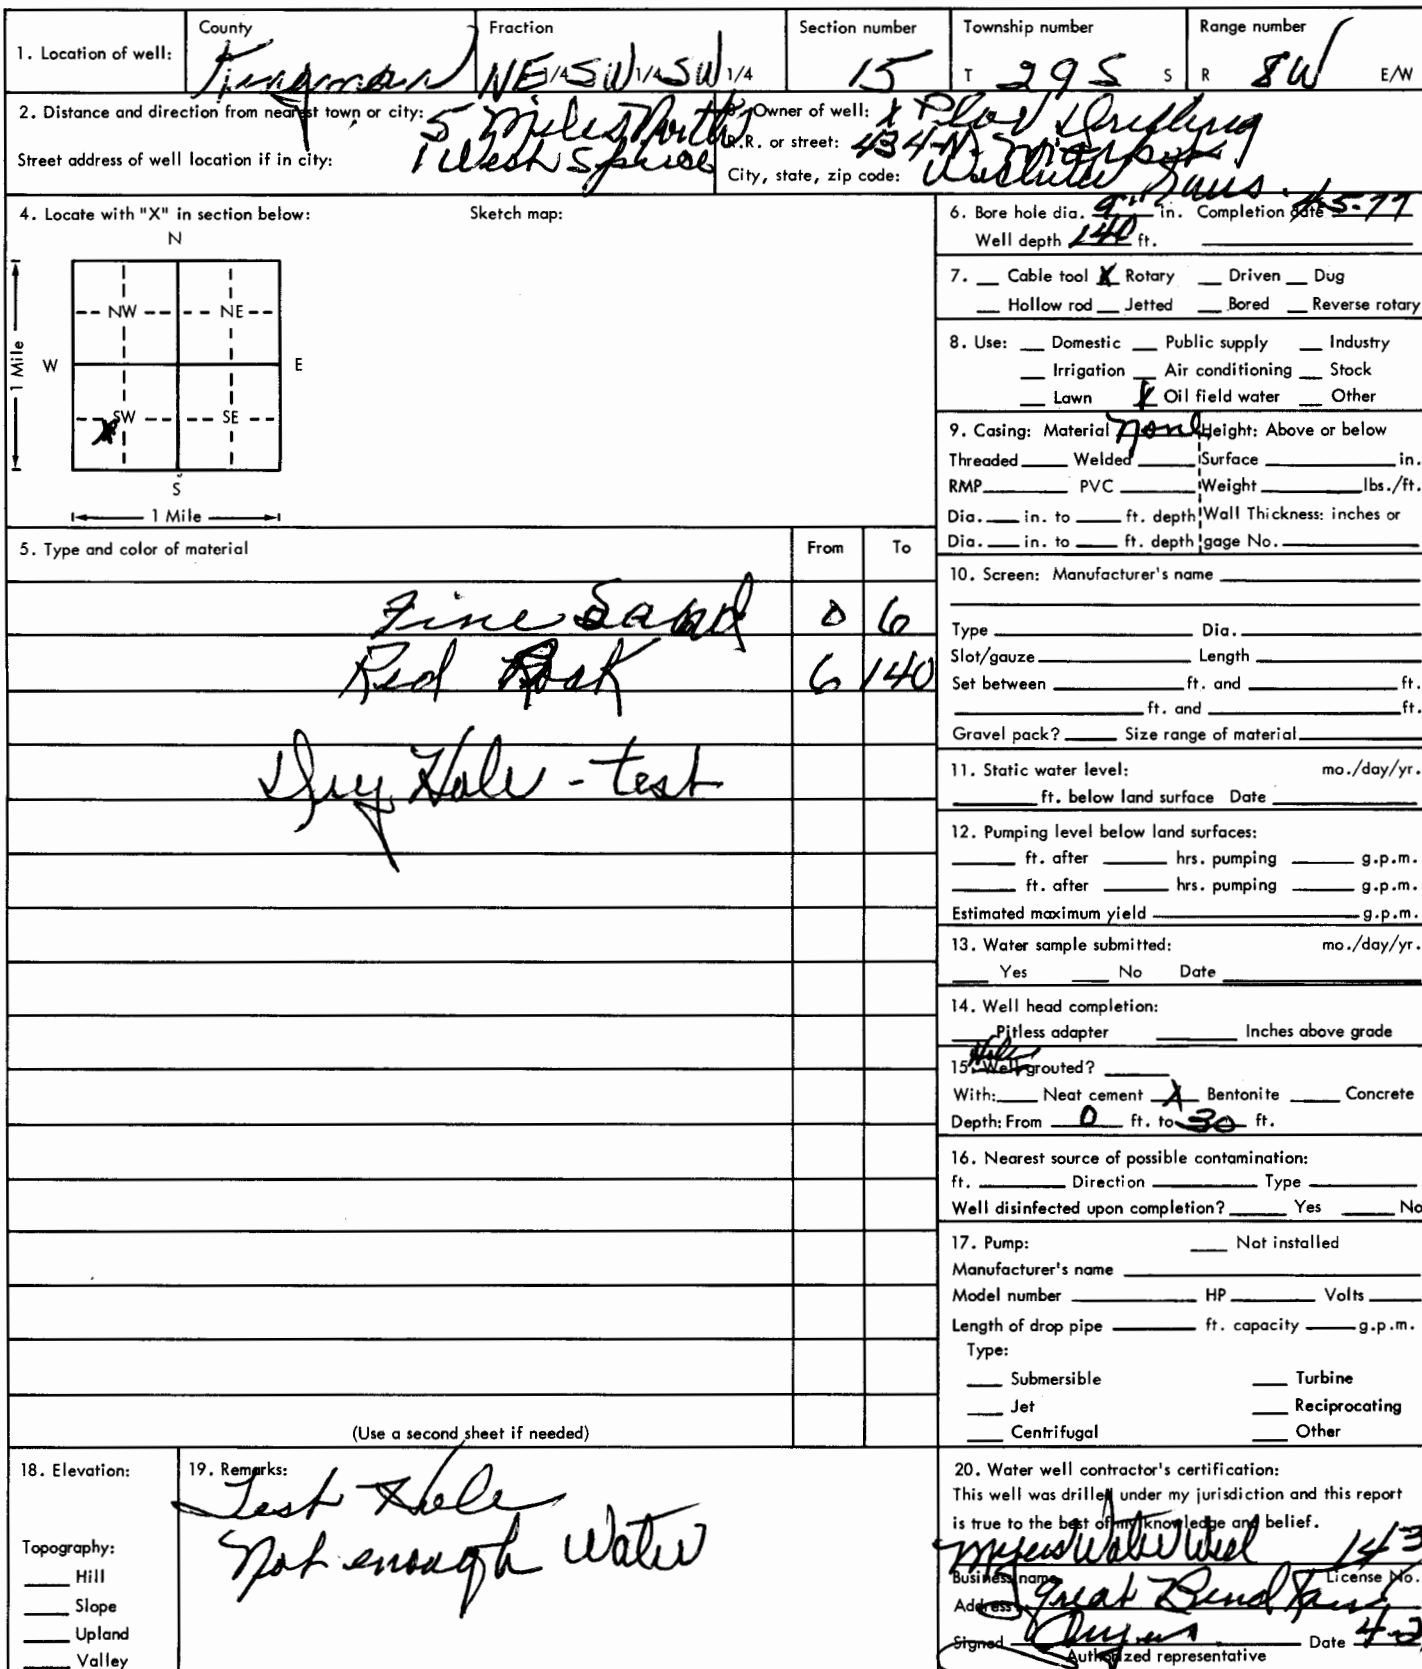 1. Location of well:
County
Kingman
Fraction
NE 1/4 SW 1/4 SW 1/4
Section number
15
Township number
T 29S S
Range number
R 8W E/W
2. Distance and direction from nearest town or city: 5 Miles North
Street address of well location if in city: 1 West
3. Owner of well: Drilling
R.R. or street: 434 N.
City, state, zip code: Wichita Kans.
4. Locate with "X" in section below:
Sketch map:
N
NW NE
W E
1 Mile
X SW SE
S
1 Mile
5. Type and color of material From To
Fine Sand 0 6
Red Rock 6 140
Dry Hole - test
(Use a second sheet if needed)
6. Bore hole dia. 9" in. Completion date 4-5-77
Well depth 140 ft.
7. Cable tool X Rotary Driven Dug
Hollow rod Jetted Bored Reverse rotary
8. Use: Domestic Public supply Industry
Irrigation Air conditioning Stock
Lawn X Oil field water Other
9. Casing: Material None Height: Above or below
Threaded Welded Surface in.
RMP PVC Weight lbs./ft.
Dia. in. to ft. depth Wall Thickness: inches or
Dia. in. to ft. depth gage No.
10. Screen: Manufacturer's name
Type Dia.
Slot/gauze Length
Set between ft. and ft.
ft. and ft.
Gravel pack? Size range of material
11. Static water level: mo./day/yr.
ft. below land surface Date
12. Pumping level below land surfaces:
ft. after hrs. pumping g.p.m.
ft. after hrs. pumping g.p.m.
Estimated maximum yield g.p.m.
13. Water sample submitted: mo./day/yr.
Yes No Date
14. Well head completion:
Pitless adapter Inches above grade
Hole
15. Well grouted?
With: Neat cement X Bentonite Concrete
Depth: From 0 ft. to 30 ft.
16. Nearest source of possible contamination:
ft. Direction Type
Well disinfected upon completion? Yes No
17. Pump: Not installed
Manufacturer's name
Model number HP Volts
Length of drop pipe ft. capacity g.p.m.
Type:
Submersible Turbine
Jet Reciprocating
Centrifugal Other
18. Elevation:
Topography:
Hill
Slope
Upland
Valley
19. Remarks:
Test Hole
Not enough Water
20. Water well contractor's certification:
This well was drilled under my jurisdiction and this report
is true to the best of my knowledge and belief.
Myers Water Well 143
Business name License No.
Address Great Bend Kans
Signed Date 4-2
Authorized representative